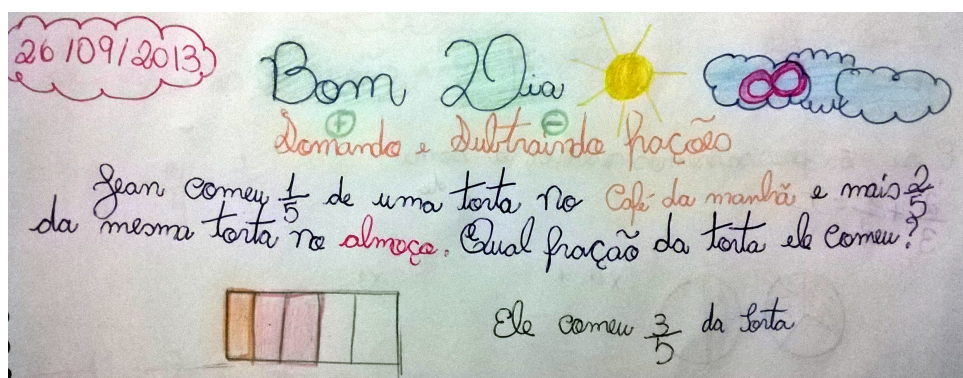 26/09/2013
Bom Dia
+ -
Somando e Subtraindo frações
Jean comeu 1/5 de uma torta no Café da manhã e mais 2/5
da mesma torta no almoço. Qual fração da torta ele comeu?
Ele comeu 3/5 da torta